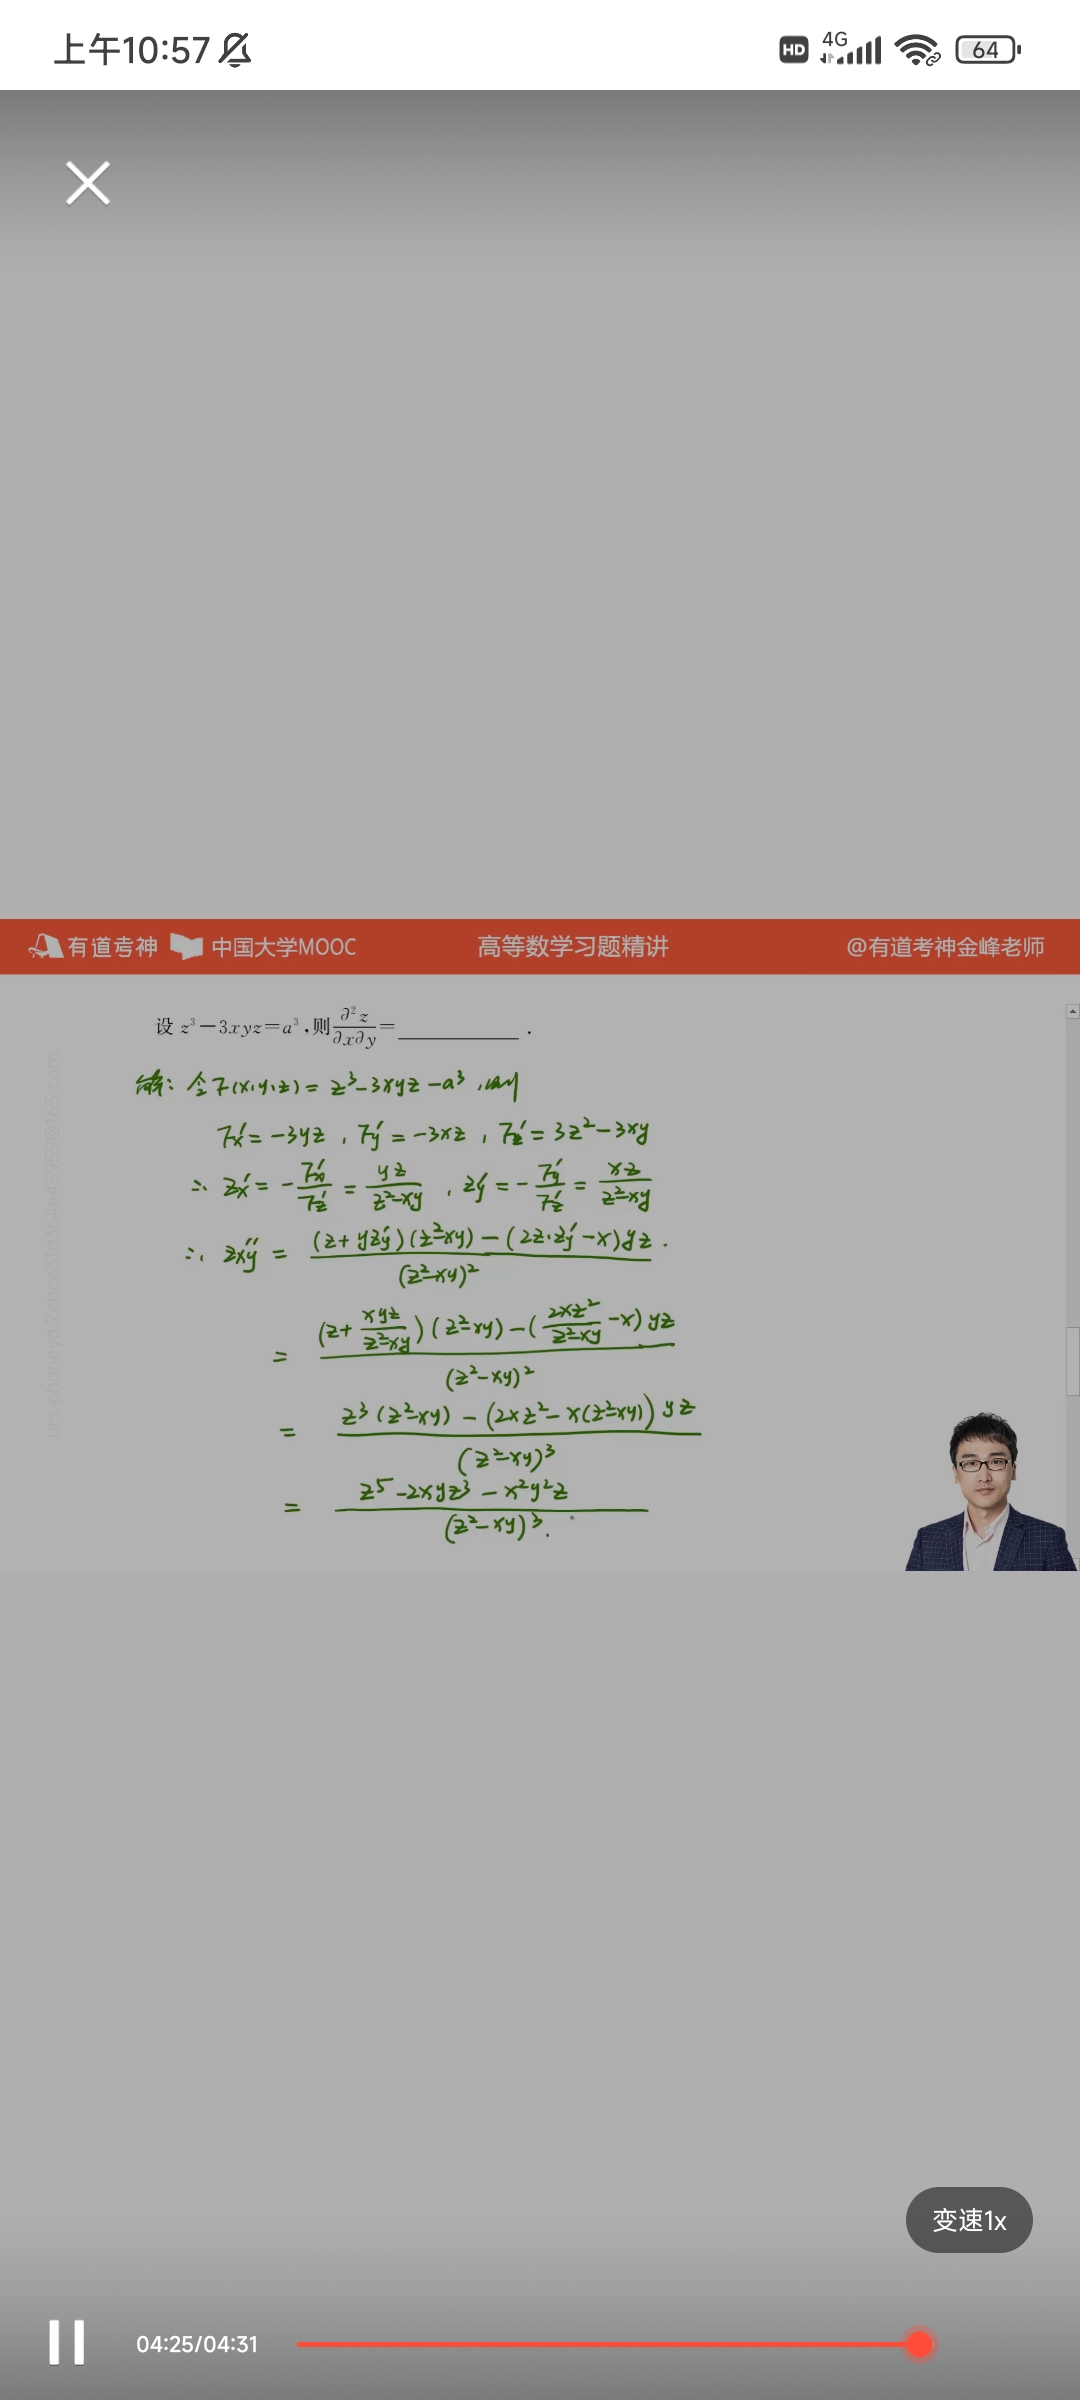 上午10:57 HD 4G 64
有道考神 中国大学MOOC 高等数学习题精讲 @有道考神金峰老师
设 z³－3xyz＝a³,则 ∂²z/∂x∂y ＝________.
解: 令F(x,y,z) = z³-3xyz-a³,则
Fx′ = -3yz , Fy′ = -3xz , Fz′ = 3z²-3xy
∴ zx′ = - Fx′/Fz′ = yz/(z²-xy) , zy′ = - Fy′/Fz′ = xz/(z²-xy)
∴ zxy″ = ((z+yzy′)(z²-xy) - (2z·zy′-x)yz)/(z²-xy)² .
= ((z+ xyz/(z²-xy))(z²-xy) - (2xz²/(z²-xy) -x)yz)/(z²-xy)²
= (z³(z²-xy) - (2xz²-x(z²-xy))yz)/(z²-xy)³
= (z⁵-2xyz³-x²y²z)/(z²-xy)³.
变速1x
04:25/04:31